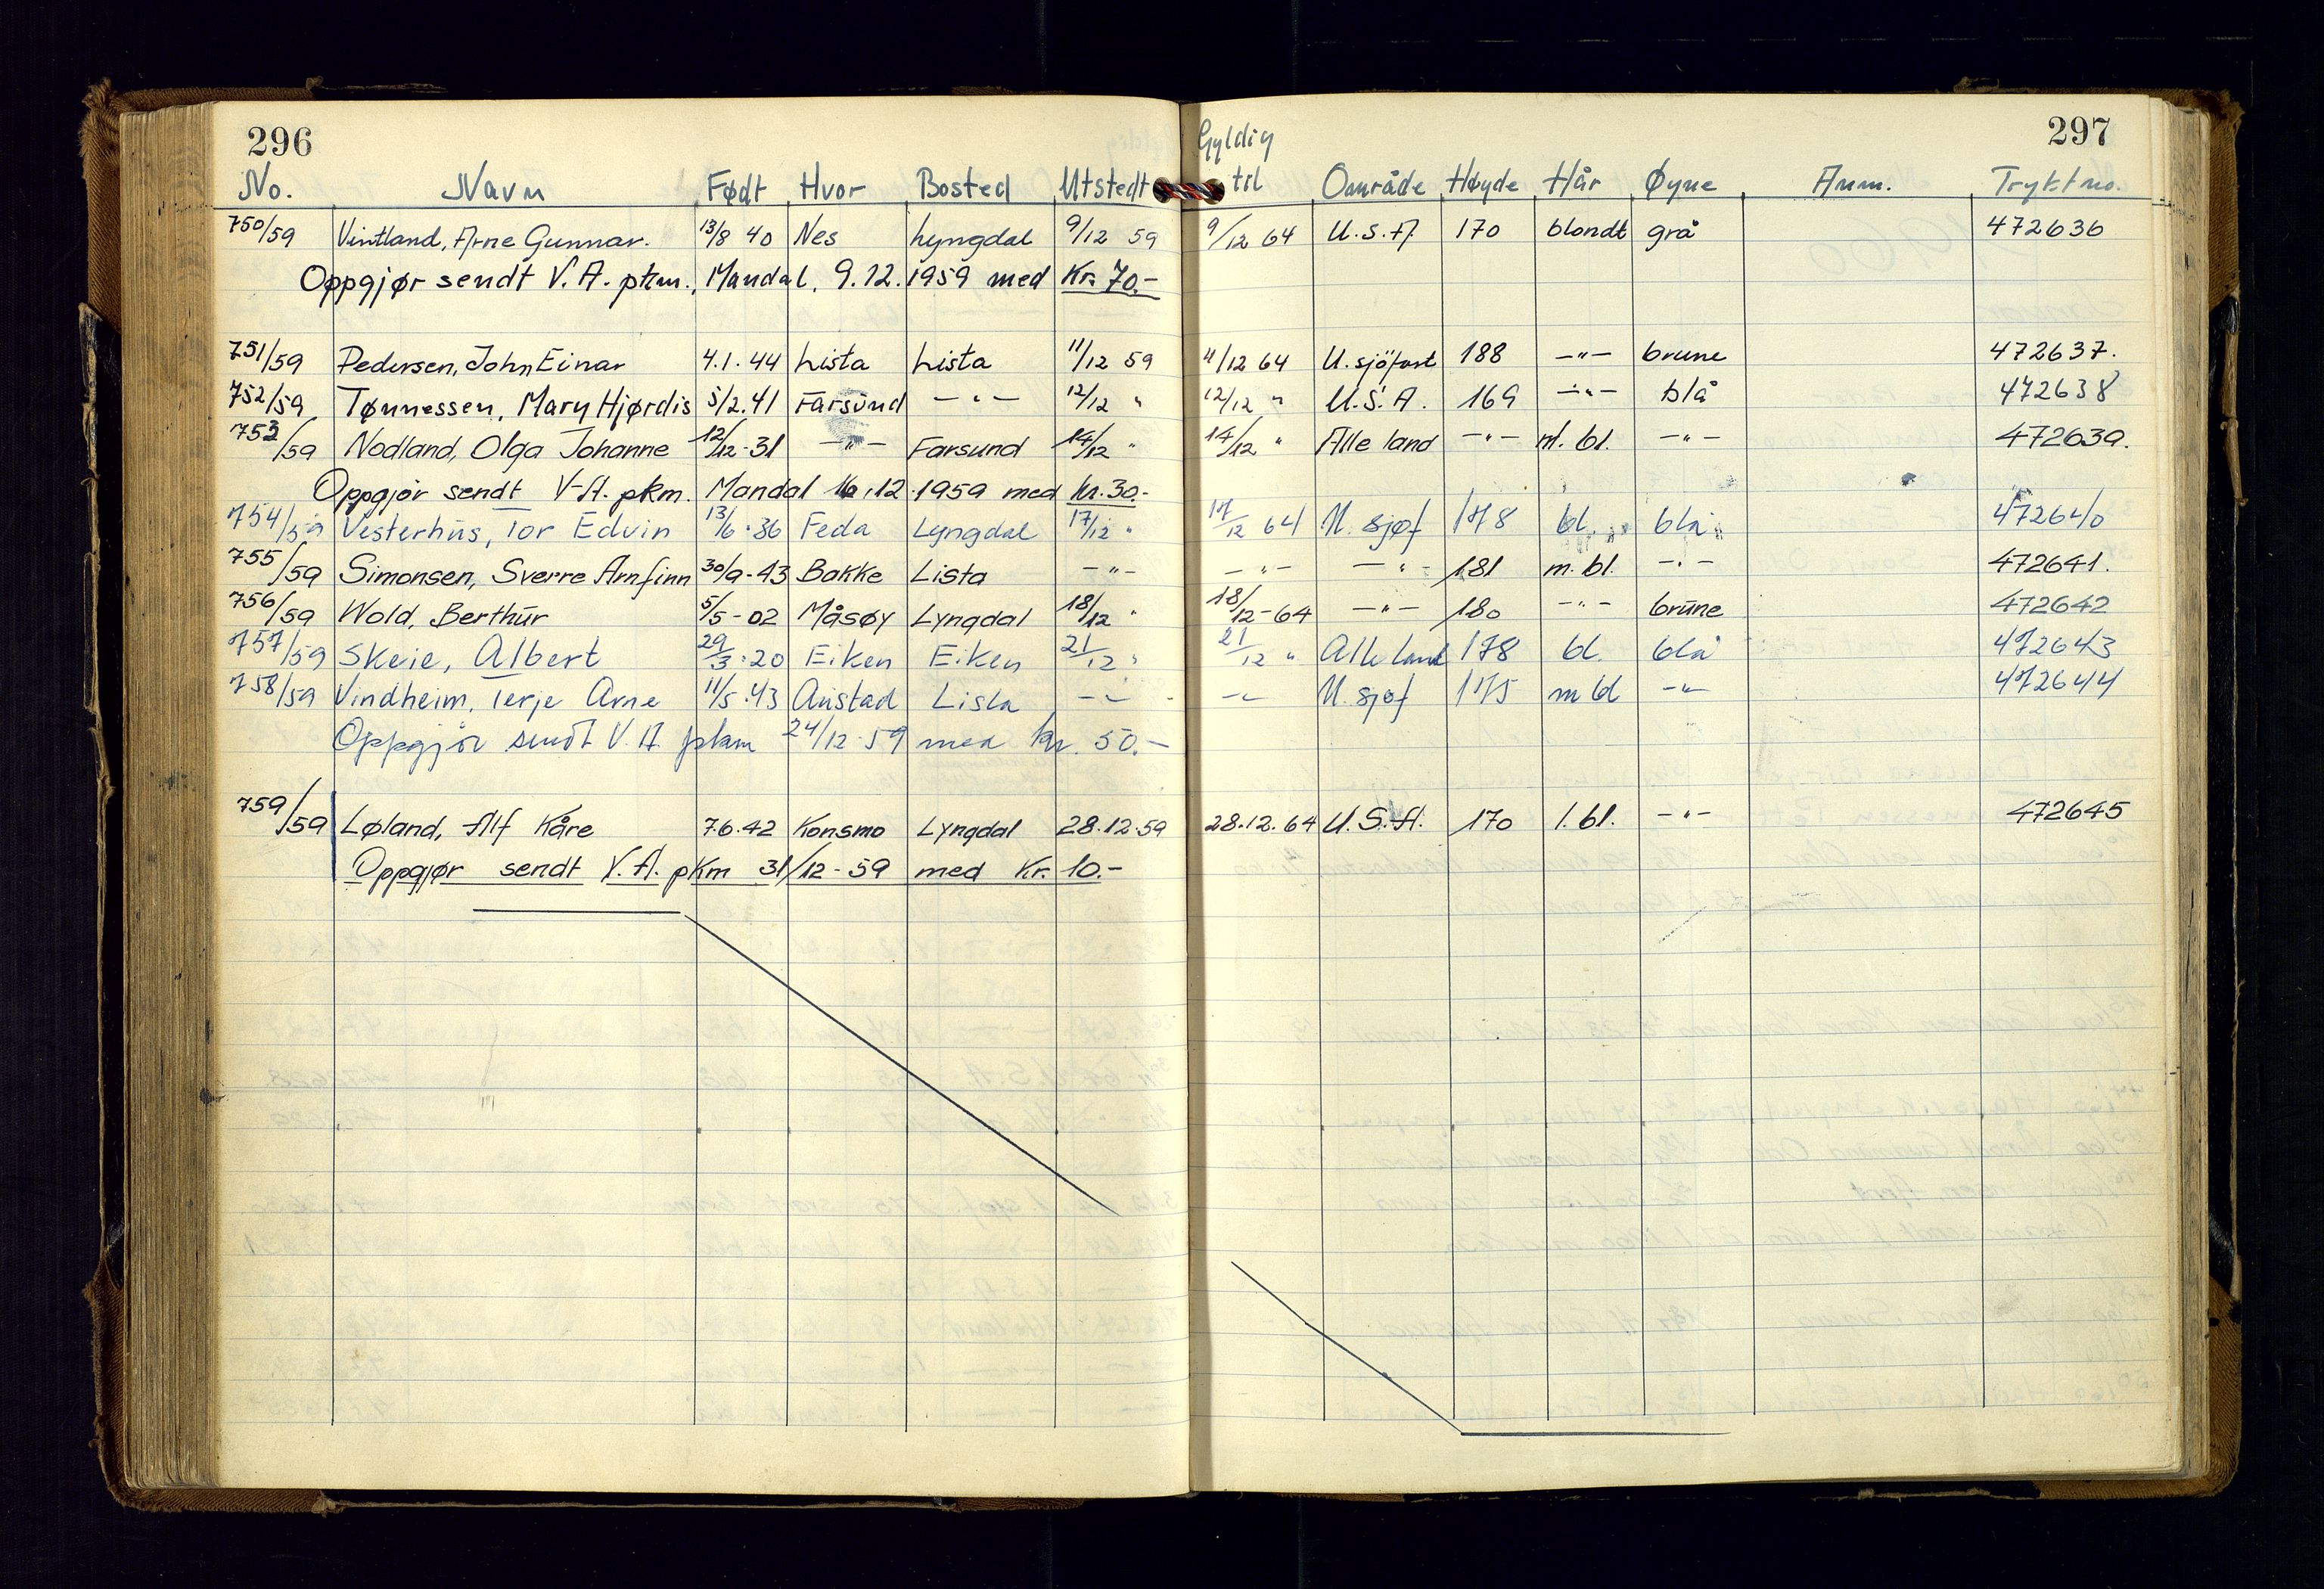 296 Gyldig 297
No. Navn Født Hvor Bosted Utstedt til Område Høyde Hår Øyne Anm. Tryktno.
750/59 Vintland, Arne Gunnar. 13/8 40 Nes Lyngdal 9/12 59 9/12 64 U.S.A 170 blondt grå 472636
Oppgjør sendt V.A. pkm., Mandal, 9.12.1959 med Kr. 70.-
751/59 Pedersen, John Einar 4.1.44 Lista Lista 11/12 59 11/12 64 U.sjöfart 188 -"- brune 472637.
752/59 Tønnessen, Mary Hjørdis 5/2.41 Farsund -"- 12/12 " 12/12 " U.S.A. 169 -"- blå 472638
753/59 Nodland, Olga Johanne 12/12-31 -"- Farsund 14/12 " 14/12 " Alle land -"- m. bl. -"- 472639.
Oppgjør sendt V-A. pkm. Mandal 16.12.1959 med Kr. 30.-
754/59 Vesterhus, Tor Edvin 13/6.36 Feda Lyngdal 17/12 " 17/12 64 U. sjøf 178 bl. blå 472640
755/59 Simonsen, Sverre Arnfinn 30/9-43 Bakke Lista -"- -"- -"- 181 m. bl. -"- 472641.
756/59 Wold, Berthur 5/5-02 Måsøy Lyngdal 18/12 " 18/12-64 -"- 180 -"- brune 472642
757/59 Skeie, Albert 29/3.20 Eiken Eiken 21/12 " 21/12 " Alle land 178 bl. blå 472643
758/59 Vindheim, Terje Arne 11/5.43 Austad Lista -"- -"- U. sjøf 175 m bl -"- 472644
Oppgjör sendt V.A. pkm 24/12-59 med kr. 50.-
759/59 Løland, Alf Kåre 7.6.42 Konsmo Lyngdal 28.12.59 28.12.64 U.S.A. 170 l. bl. -"- 472645
Oppgjør sendt V.A. pkm 31/12-59 med Kr. 10.-